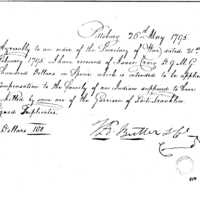 Pittsburg 26th May 1795.
Agreeably to an order of the Secretary of War, dated 21st
February 1795 I have received of Isaac Craig D Q M G
Hundred Dollars in Specie which is intended to be applied
Compensation to the Family of an Indian supposed to have
killed by some one of the Garrison of Fort Franklin
Signed Duplicates.
Dollars 100
Butler